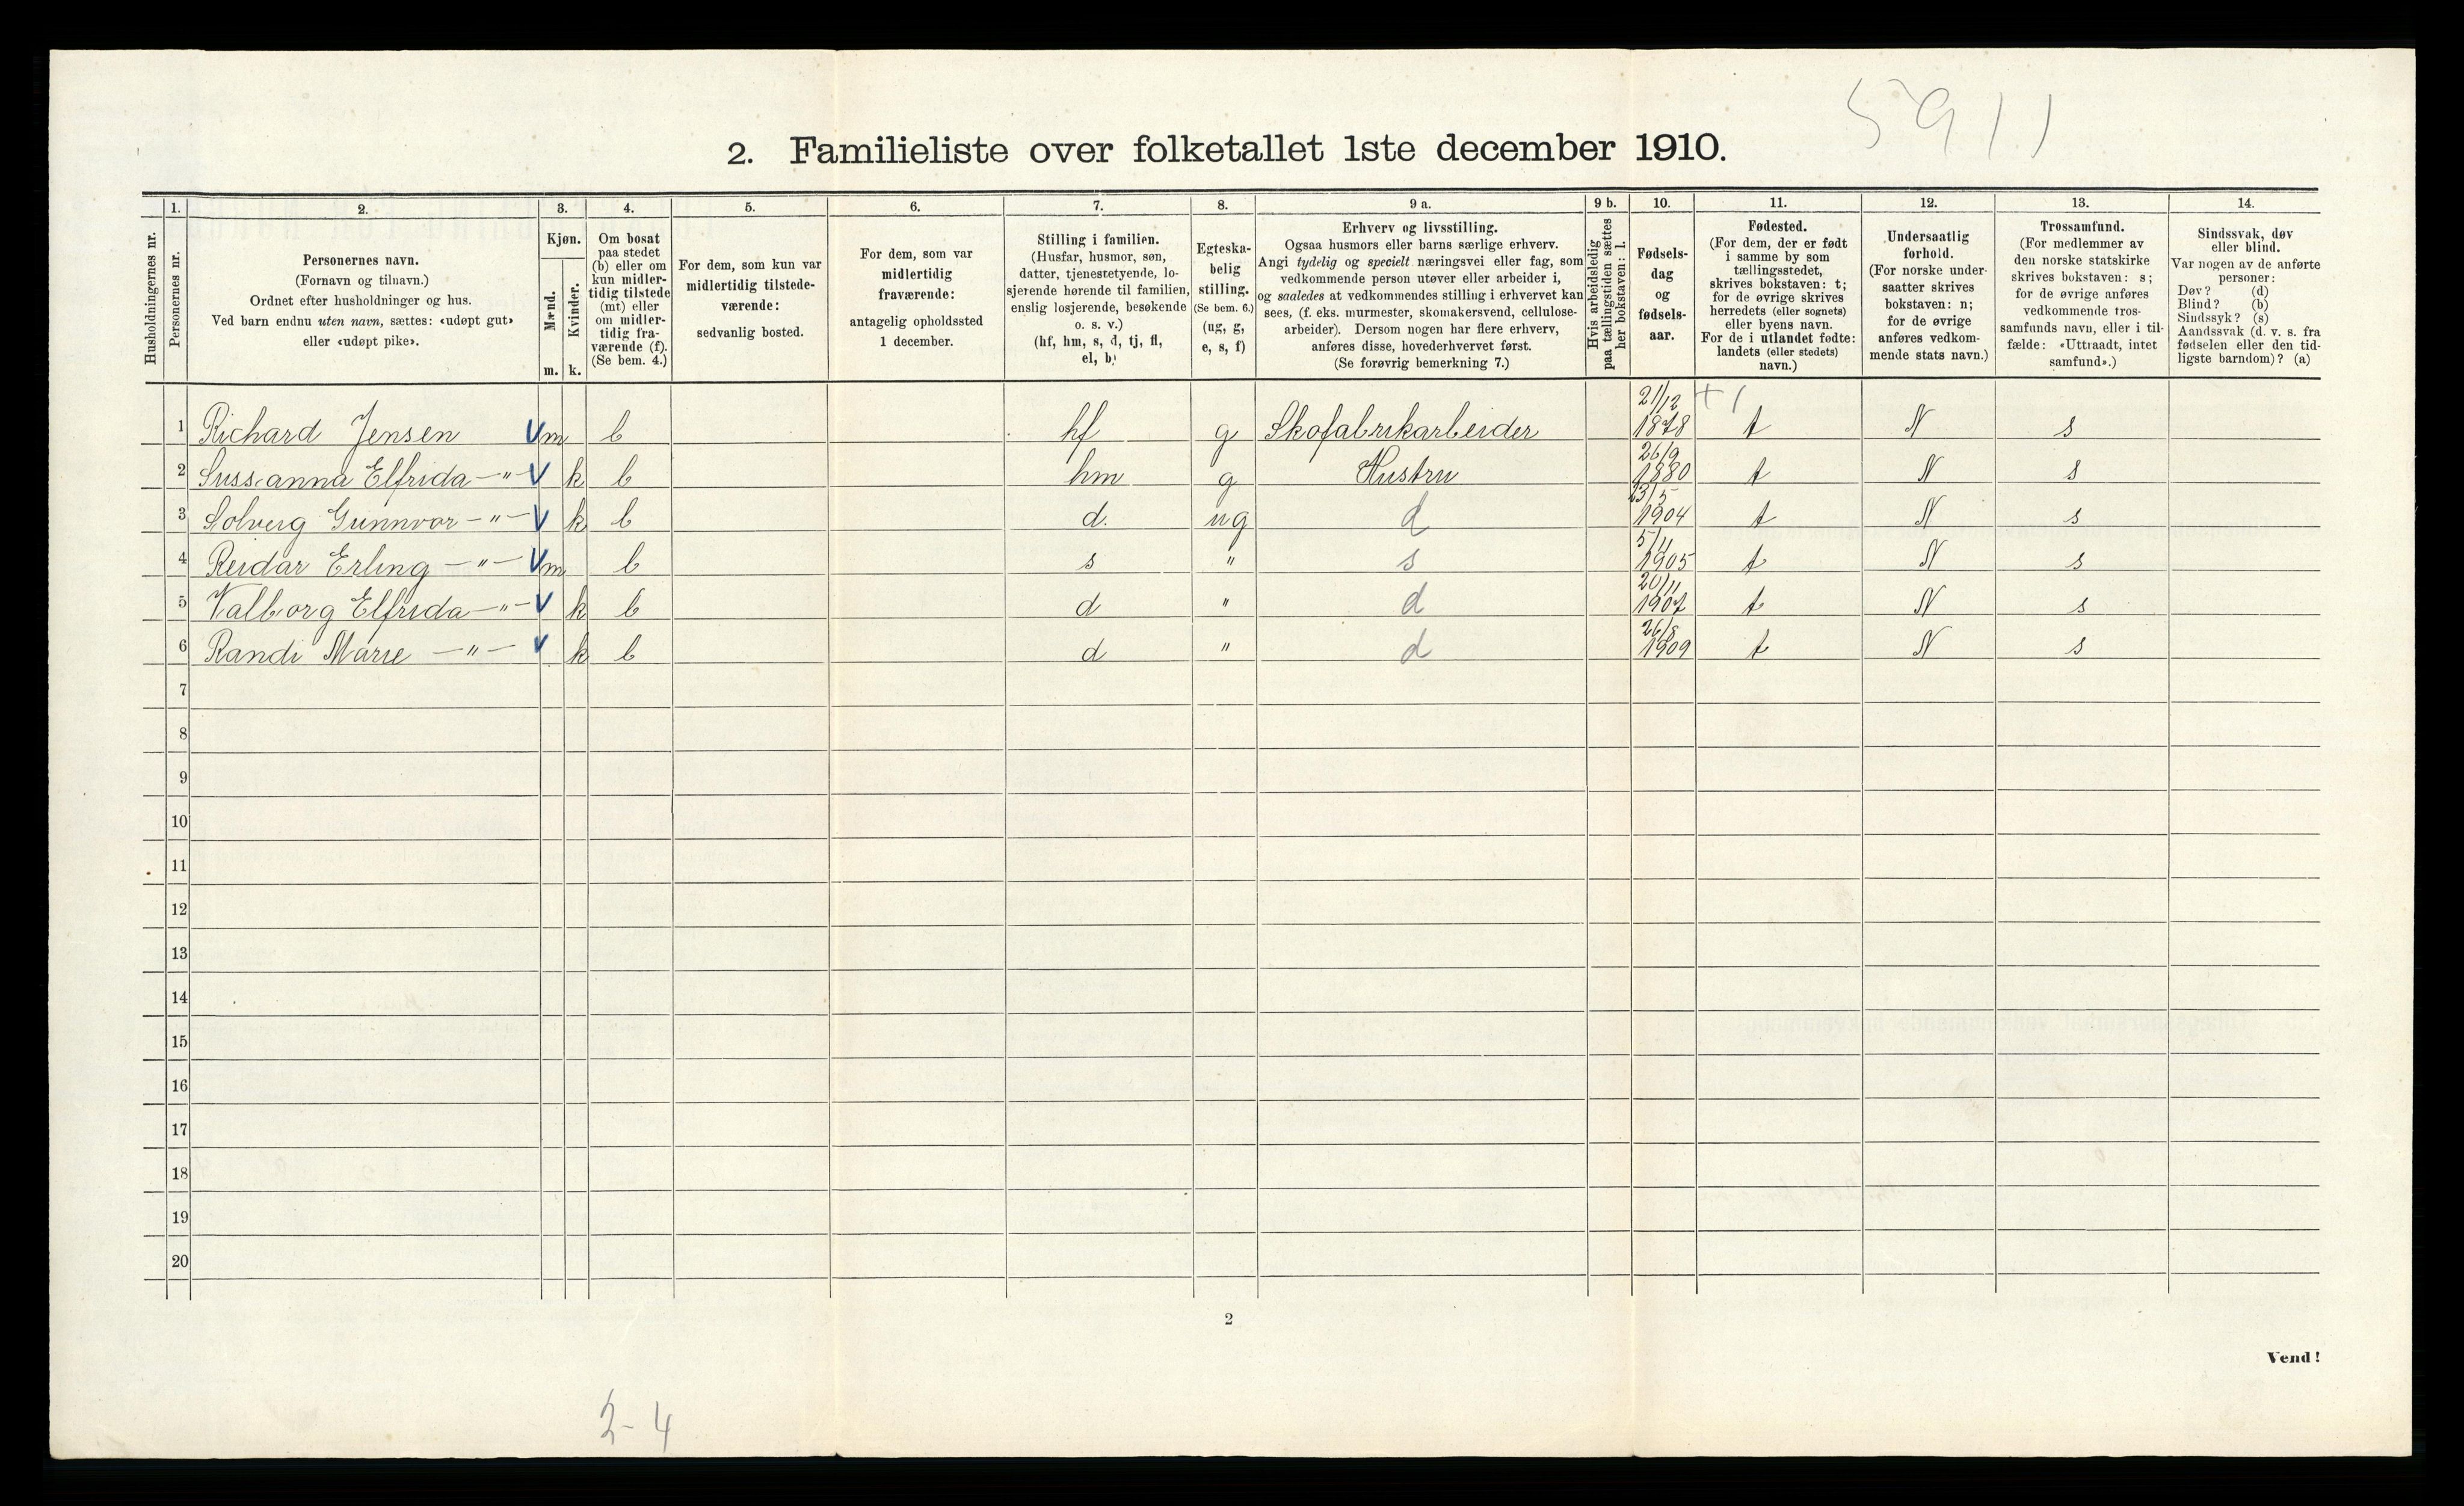 5911
2. Familieliste over folketallet 1ste december 1910.
Husholdningernes nr.
1. Personernes nr.
2. Personernes navn.
(Fornavn og tilnavn.)
Ordnet efter husholdninger og hus.
Ved barn endnu uten navn, sættes: «udøpt gut»
eller «udøpt pike».
3. Kjøn.
Mænd. m.
Kvinder. k.
4. Om bosat
paa stedet
(b) eller om
kun midler-
tidig tilstede
(mt) eller
om midler-
tidig fra-
værende (f).
(Se bem. 4.)
5. For dem, som kun var
midlertidig tilstede-
værende:
sedvanlig bosted.
6. For dem, som var
midlertidig
fraværende:
antagelig opholdssted
1 december.
7. Stilling i familien.
(Husfar, husmor, søn,
datter, tjenestetyende, lo-
sjerende hørende til familien,
enslig losjerende, besøkende
o. s. v.)
(hf, hm, s, d, tj, fl,
el, b)
8. Egteska-
belig
stilling.
(Se bem. 6.)
(ug, g,
e, s, f)
9 a. Erhverv og livsstilling.
Ogsaa husmors eller barns særlige erhverv.
Angi tydelig og specielt næringsvei eller fag, som
vedkommende person utøver eller arbeider i,
og saaledes at vedkommendes stilling i erhvervet kan
sees, (f. eks. murmester, skomakersvend, cellulose-
arbeider). Dersom nogen har flere erhverv,
anføres disse, hovederhvervet først.
(Se forøvrig bemerkning 7.)
9 b. Hvis arbeidsledig
paa tællingstiden sættes
her bokstaven: l.
10. Fødsels-
dag
og
fødsels-
aar.
11. Fødested.
(For dem, der er født
i samme by som
tællingsstedet,
skrives bokstaven: t;
for de øvrige skrives
herredets (eller sognets)
eller byens navn.
For de i utlandet fødte:
landets (eller stedets)
navn.)
12. Undersaatlig
forhold.
(For norske under-
saatter skrives
bokstaven: n;
for de øvrige
anføres vedkom-
mende stats navn.)
13. Trossamfund.
(For medlemmer av
den norske statskirke
skrives bokstaven: s;
for de øvrige anføres
vedkommende tros-
samfunds navn, eller i til-
fælde: «Uttraadt, intet
samfund».)
14. Sindssvak, døv
eller blind.
Var nogen av de anførte
personer:
Døv? (d)
Blind? (b)
Sindssyk? (s)
Aandssvak (d. v. s. fra
fødselen eller den tid-
ligste barndom)? (a)
1 Richard Jensen V m b hf g Skofabrikarbeider 21/12 1878 t N s
2 Sussanna Elfrida —"— V k b hm g Hustru 26/9 1880 t N s
3 Solveig Gunnvor —"— V k b d. ug d 23/5 1904 t N s
4 Reidar Erling —"— V m b s " s 5/11 1905 t N s
5 Valborg Elfrida —"— V k b d " d 20/11 1907 t N s
6 Randi Marie —"— V k b d " d 26/8 1909 t N s
7
8
9
10
11
12
13
14
15
16
17
18
19
20
2
Vend!
2-4